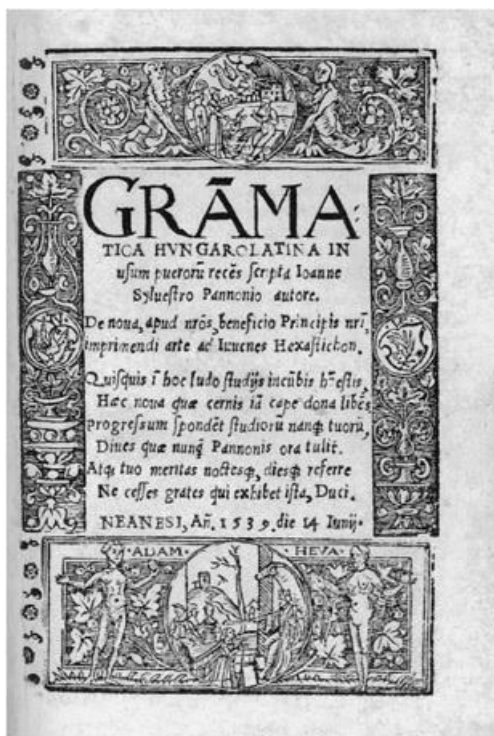 GRĀMA
TICA HVNGAROLATINA IN
usum puerorū recēs scripta Ioanne
Syluestro Pannonio autore.
De noua, apud nr̄os, beneficio Principis nr̄i,
imprimendi arte ad Iuuenes Hexastichon.
Quisquis ī hoc ludo studijs incūbis honestis,
Hæc noua quæ cernis iā cape dona libēs
Progressum spondēt studiorū nanq; tuorū,
Diues quæ nunq̄ Pannonis ora tulit.
Atq; tuo meritas noctesq;, diesq; referre
Ne cesses grates qui exhibet ista, Duci.
NEANESI, Añ. 1539. die 14 Iunij.
ADAM HEVA